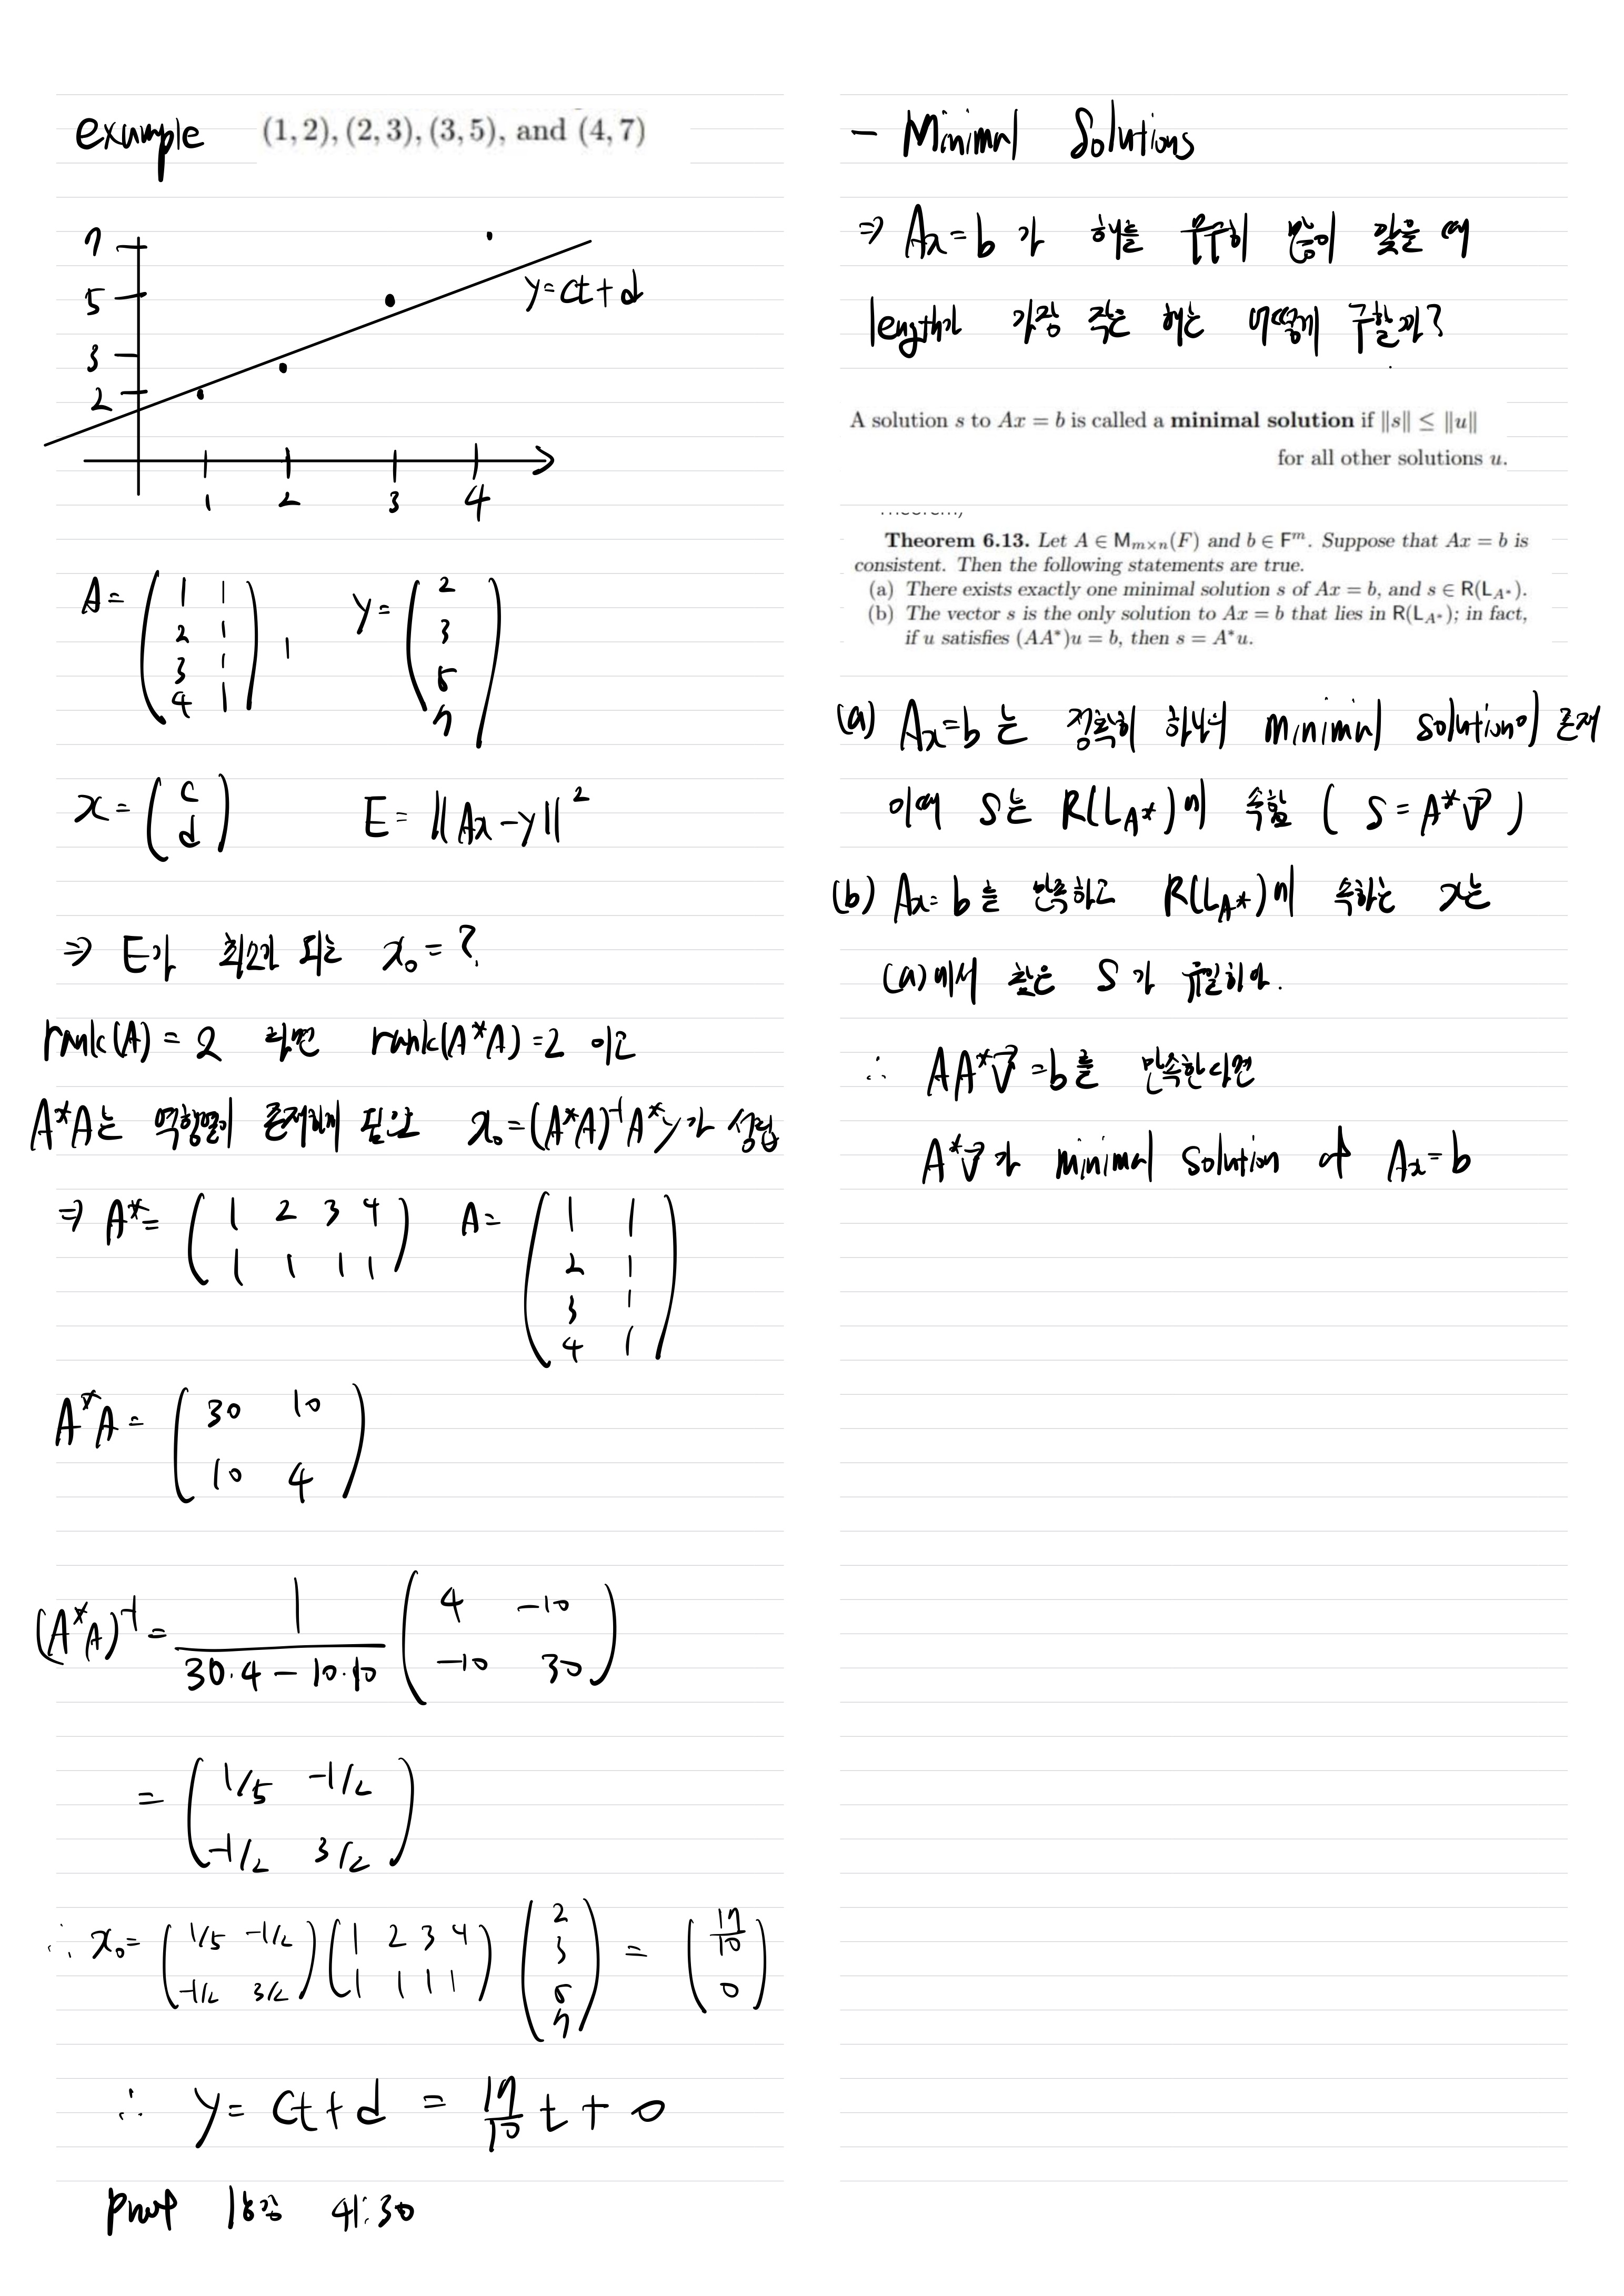 example (1, 2), (2, 3), (3, 5), and (4, 7)
7
5
3
2
y=ct+d
1 2 3 4
A= ( 1 1
2 1
3 1
4 1 ) , y= ( 2
3
5
7 )
x = ( c
d ) E = ||Ax-y||²
⇒ E가 최소가 되는 x₀ = ?
rank(A) = 2 라면 rank(A*A)=2 이고
A*A는 역행렬이 존재하게 됨으로 x₀=(A*A)⁻¹A*y가 성립
⇒ A*= ( 1 2 3 4
1 1 1 1 ) A= ( 1 1
2 1
3 1
4 1 )
A*A = ( 30 10
10 4 )
(A*A)⁻¹ = 1 / (30·4 - 10·10) ( 4 -10
-10 30 )
= ( 1/5 -1/2
-1/2 3/2 )
∴ x₀= ( 1/5 -1/2
-1/2 3/2 ) ( 1 2 3 4
1 1 1 1 ) ( 2
3
5
7 ) = ( 17/10
0 )
∴ y= ct+d = 17/10 t + 0
proof 18강 41:30
- Minimal Solutions
⇒ Ax=b 가 해를 무수히 많이 갖을 때
length가 가장 작은 해는 어떻게 구할까?
A solution s to Ax = b is called a minimal solution if ‖s‖ ≤ ‖u‖
for all other solutions u.
Theorem 6.13. Let A ∈ M_{m×n}(F) and b ∈ F^m. Suppose that Ax = b is
consistent. Then the following statements are true.
(a) There exists exactly one minimal solution s of Ax = b, and s ∈ R(L_{A*}).
(b) The vector s is the only solution to Ax = b that lies in R(L_{A*}); in fact,
if u satisfies (AA*)u = b, then s = A*u.
(a) Ax=b 는 정확히 하나의 minimal solution이 존재
이때 S는 R(L_{A*})에 속함 ( S = A*v⃗ )
(b) Ax=b 를 만족하고 R(L_{A*})에 속하는 x는
(a)에서 찾은 S 가 유일하다.
∴ AA*v⃗ =b를 만족한다면
A*v⃗ 가 minimal solution of Ax=b